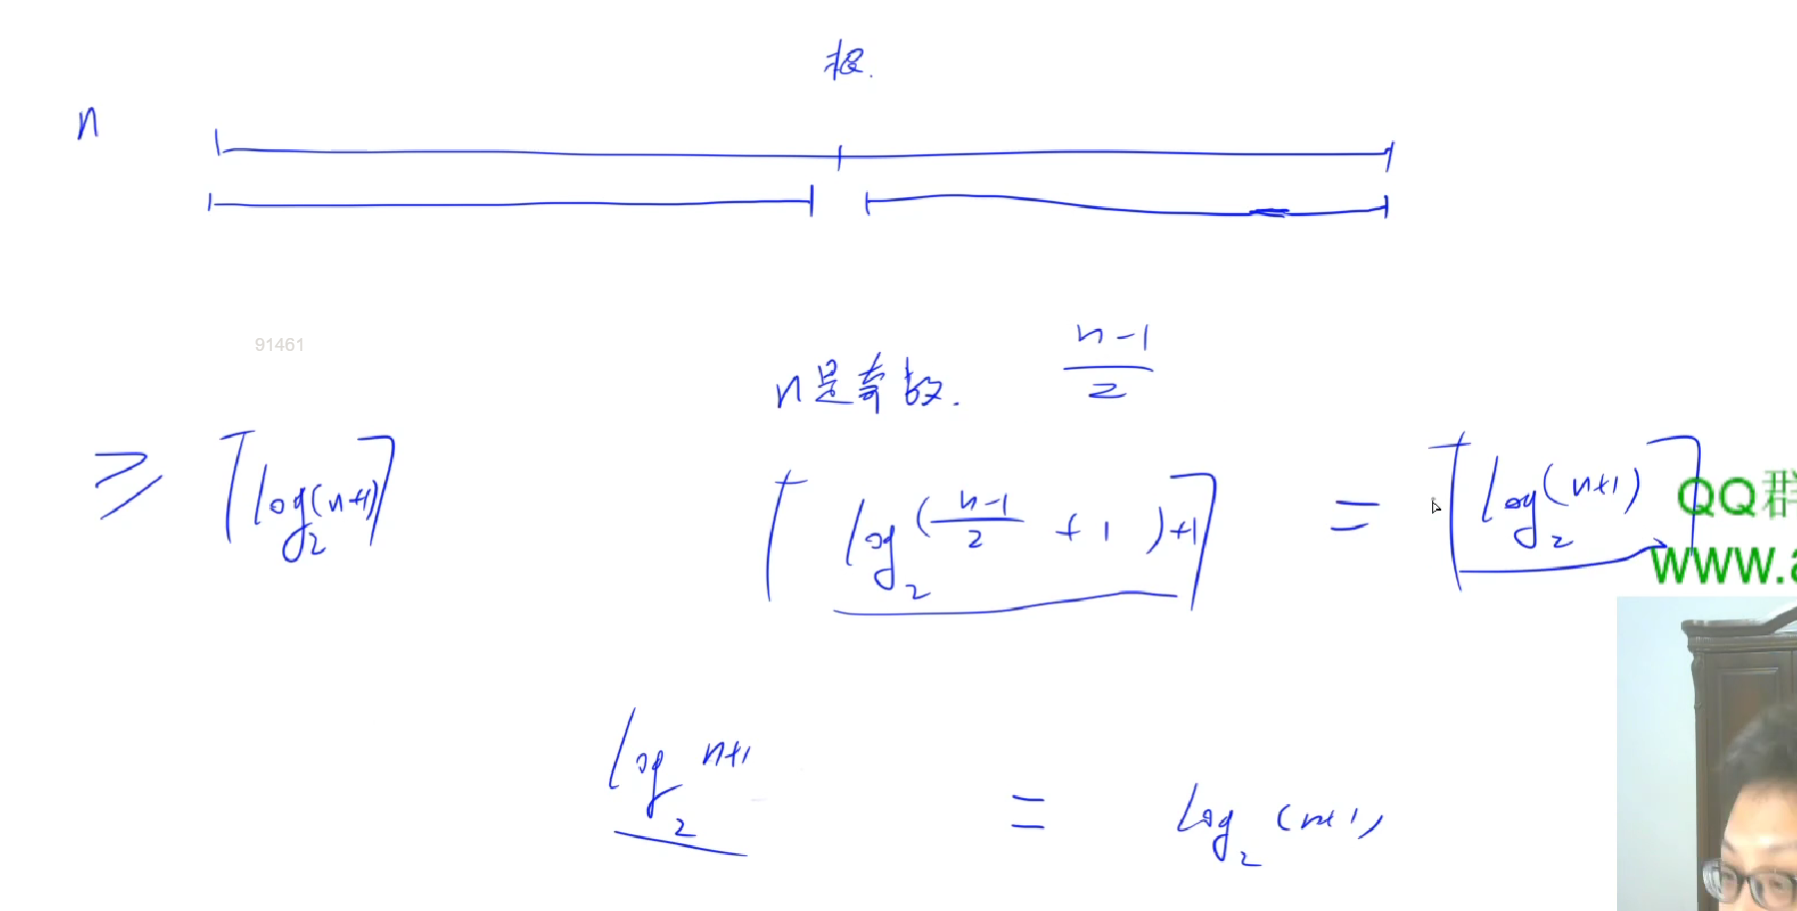 根.
n
91461
n是奇数. \frac{n-1}{2}
≥ ⌈log₂(n+1)⌉ ⌈log₂(\frac{n-1}{2} + 1) + 1⌉ = ⌈log₂(n+1)⌉
QQ群
www.a
log₂ n+1 = log₂ (n+1)